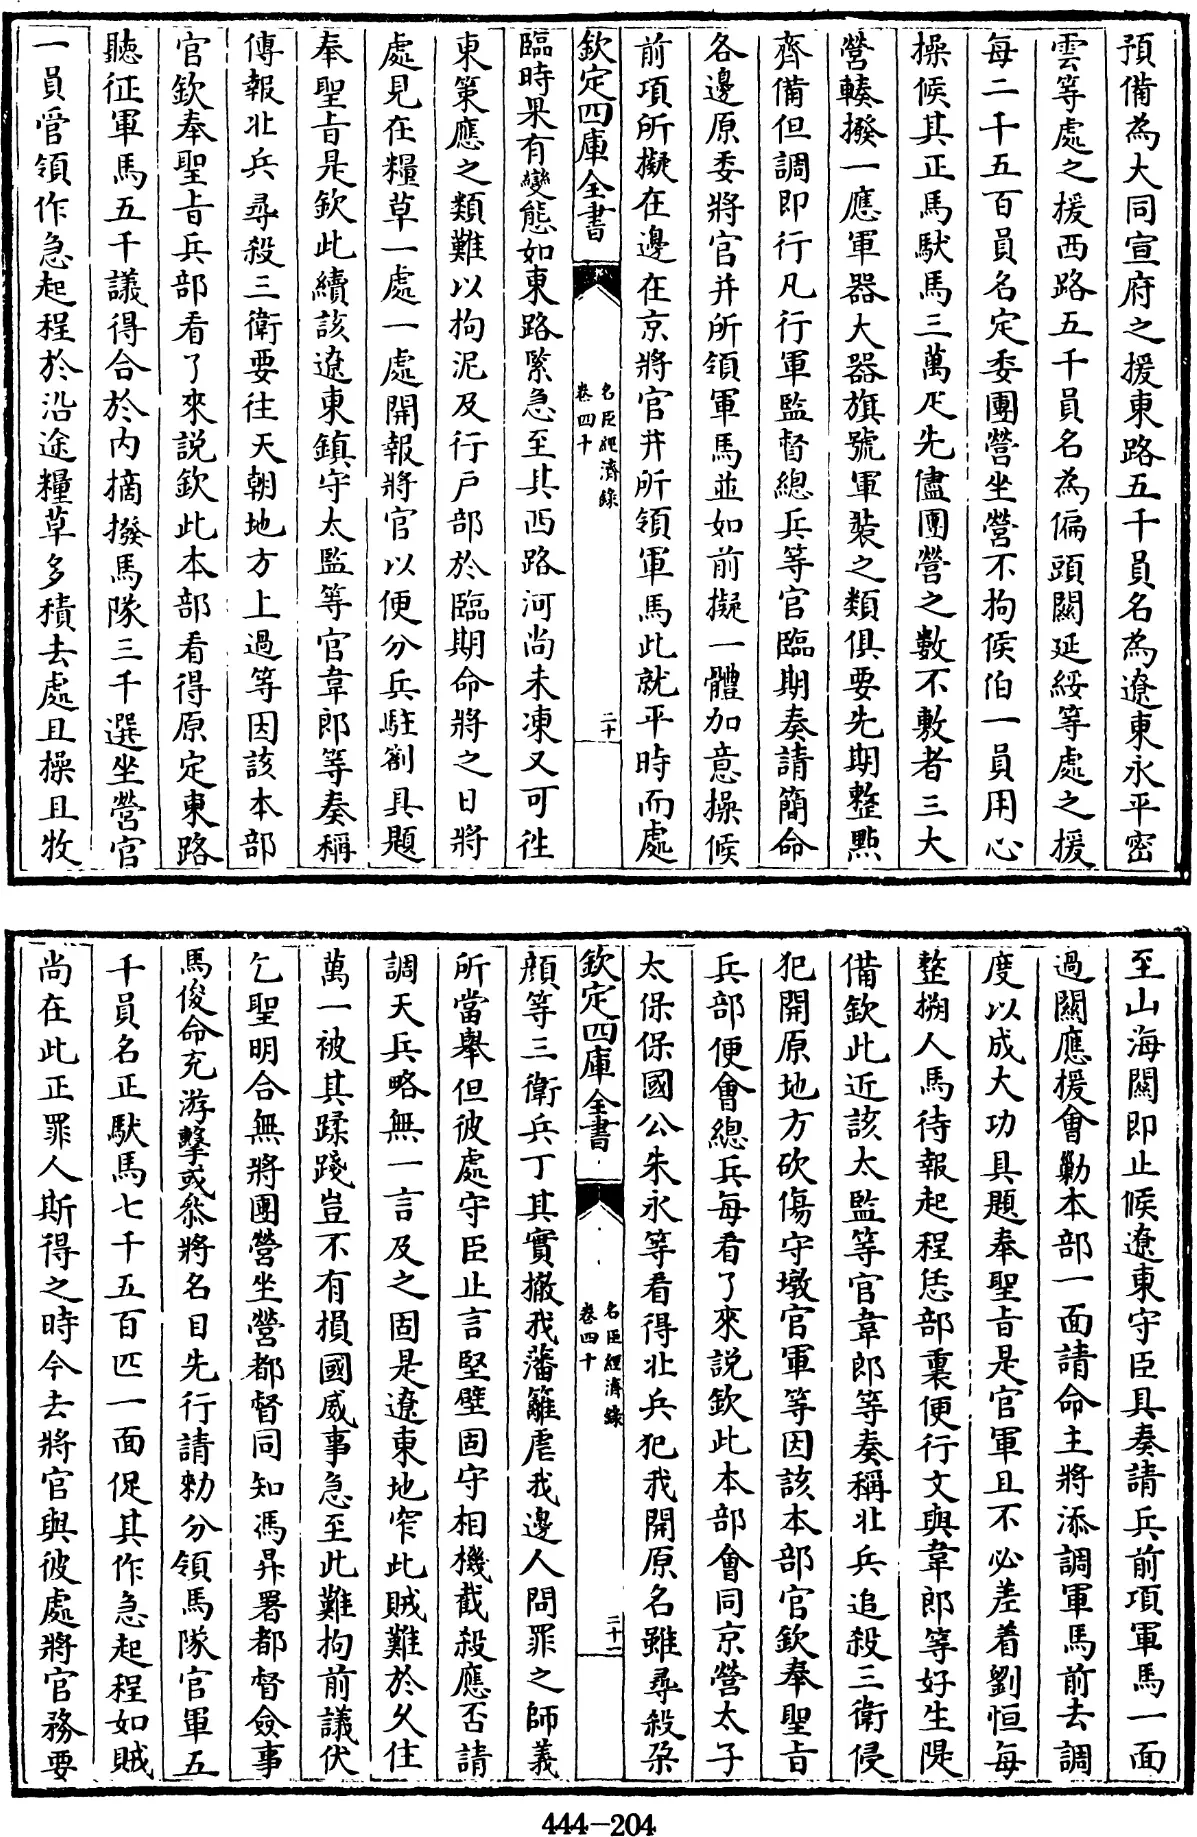 預備為大同宣府之援東路五千員名為遼東永平密
雲等處之援西路五千員名為偏頭關延綏等處之援
每二千五百員名定委團營坐營不拘侯伯一員用心
操候其正馬馱馬三萬疋先儘團營之數不敷者三大
營轃撥一應軍器大器旗號軍裝之類俱要先期整點
齊備但調即行凡行軍監督總兵等官臨期奏請簡命
各邊原委將官并所領軍馬並如前擬一體加意操候
前項所擬在邊在京將官并所領軍馬此就平時而處
欽定四庫全書
名臣經濟錄
卷四十
二十
臨時果有變態如東路緊急至其西路河尚未凍又可徃
東策應之類難以拘泥及行户部於臨期命將之日將
處見在糧草一處一處開報將官以便分兵駐劄具題
奉聖旨是欽此續該遼東鎮守太監等官韋郎等奏稱
傳報北兵尋殺三衛要往天朝地方上過等因該本部
官欽奉聖旨兵部看了來説欽此本部看得原定東路
聽征軍馬五千議得合於内摘撥馬隊三千選坐營官
一員管領作急起程於沿途糧草多積去處且操且牧
至山海關即止候遼東守臣具奏請兵前項軍馬一面
過關應援會勦本部一面請命主將添調軍馬前去調
度以成大功具題奉聖旨是官軍且不必差着劉恒每
整搠人馬待報起程恁部裏便行文與韋郎等好生隄
備欽此近該太監等官韋郎等奏稱北兵追殺三衛侵
犯開原地方砍傷守墩官軍等因該本部官欽奉聖旨
兵部便會總兵每看了來説欽此本部會同京營太子
太保保國公朱永等看得北兵犯我開原名雖尋殺朶
欽定四庫全書
名臣經濟錄
卷四十
二十一
顔等三衛兵丁其實撤我藩籬虐我邊人問罪之師義
所當舉但彼處守臣止言堅壁固守相機截殺應否請
調天兵略無一言及之固是遼東地窄此賊難於久住
萬一被其蹂踐豈不有損國威事急至此難拘前議伏
乞聖明合無將團營坐營都督同知馮昇署都督僉事
馬俊命充游擊或叅將名目先行請勅分領馬隊官軍五
千員名正馱馬七千五百匹一面促其作急起程如賊
尚在此正罪人斯得之時今去將官與彼處將官務要
444-204